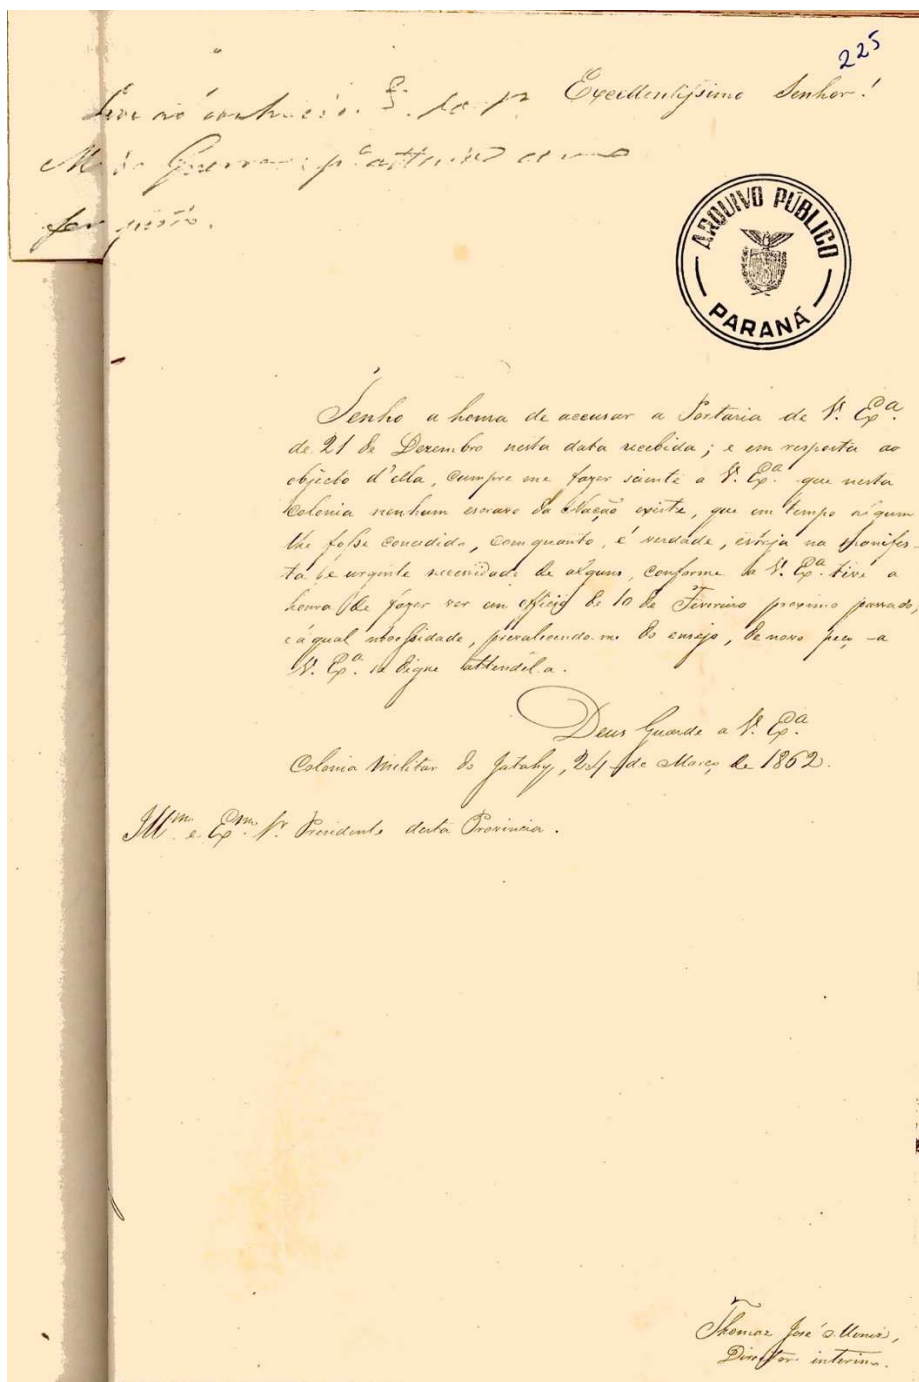 225
Excellentissimo Senhor!
Guerra
ARQUIVO PÚBLICO
PARANÁ
Tenho a honra de accusar a Portaria de V. Exª.
de 21 de Dezembro nesta data recebida; e em resposta ao
objecto d'ella, cumpre me fazer sciente a V. Exª. que nesta
Colonia nenhum escravo da Nação existe, que em tempo algum
lhe fosse concedido, comquanto, é verdade, esteja na manifes-
ta e urgente necessidade de alguns, conforme a V. Exª. tive a
honra de fazer ver em officio de 10 de Fevereiro proximo passado,
e á qual necessidade, prevalecendo-me do ensejo, de novo peço a
V. Exª. se digne attendel-a.
Deus Guarde a V. Exª.
Colonia Militar do Jatahy, 24 de Março de 1862.
Illm. e Exm. Sr. Presidente desta Provincia.
Thomaz José Muniz,
Director interino.